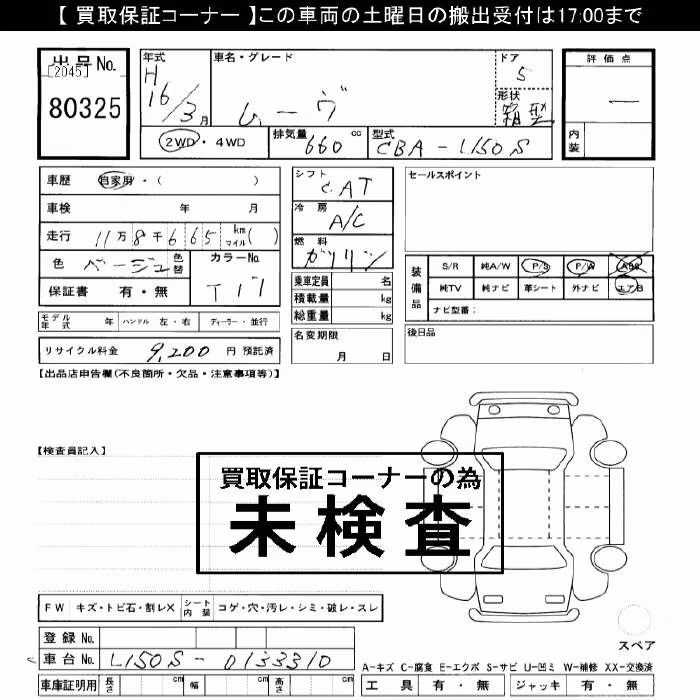 【 買取保証コーナー 】この車両の土曜日の搬出受付は17:00まで
出品No.
[2045]
80325
年式
H
16/3月
車名・グレード
ムーヴ
ドア
5
形状
箱型
2WD・4WD
排気量
660 cc
型式
CBA-L150S
評価点
内装
車歴 自家用・( )
車検 年 月
走行 11万8千665 km(マイル)
色 ベージュ 色替
カラーNo.
T17
保証書 有・無
モデル年式 年 ハンドル 左・右 ディーラー・並行
リサイクル料金 9,200 円 預託済
シフト
CAT
冷房
A/C
燃料
ガソリン
乗車定員 名
積載量 kg
総重量 kg
名変期限
月 日
セールスポイント
装備品
S/R 純A/W P/S P/W ABS
純TV 純ナビ 革シート 外ナビ エアB
ナビ型番:
後日品
【出品店申告欄(不良箇所・欠品・注意事項等)】
【検査員記入】
買取保証コーナーの為
未検査
FW キズ・トビ石・割レX シート内装 コゲ・穴・汚レ・シミ・破レ・スレ
登録No.
車台No. L150S-0133310
車庫証明用 長さ cm 幅 cm 高さ cm
スペア
A-キズ C-腐食 E-エクボ S-サビ U-凹ミ W-補修 XX-交換済
工具 有・無 ジャッキ 有・無